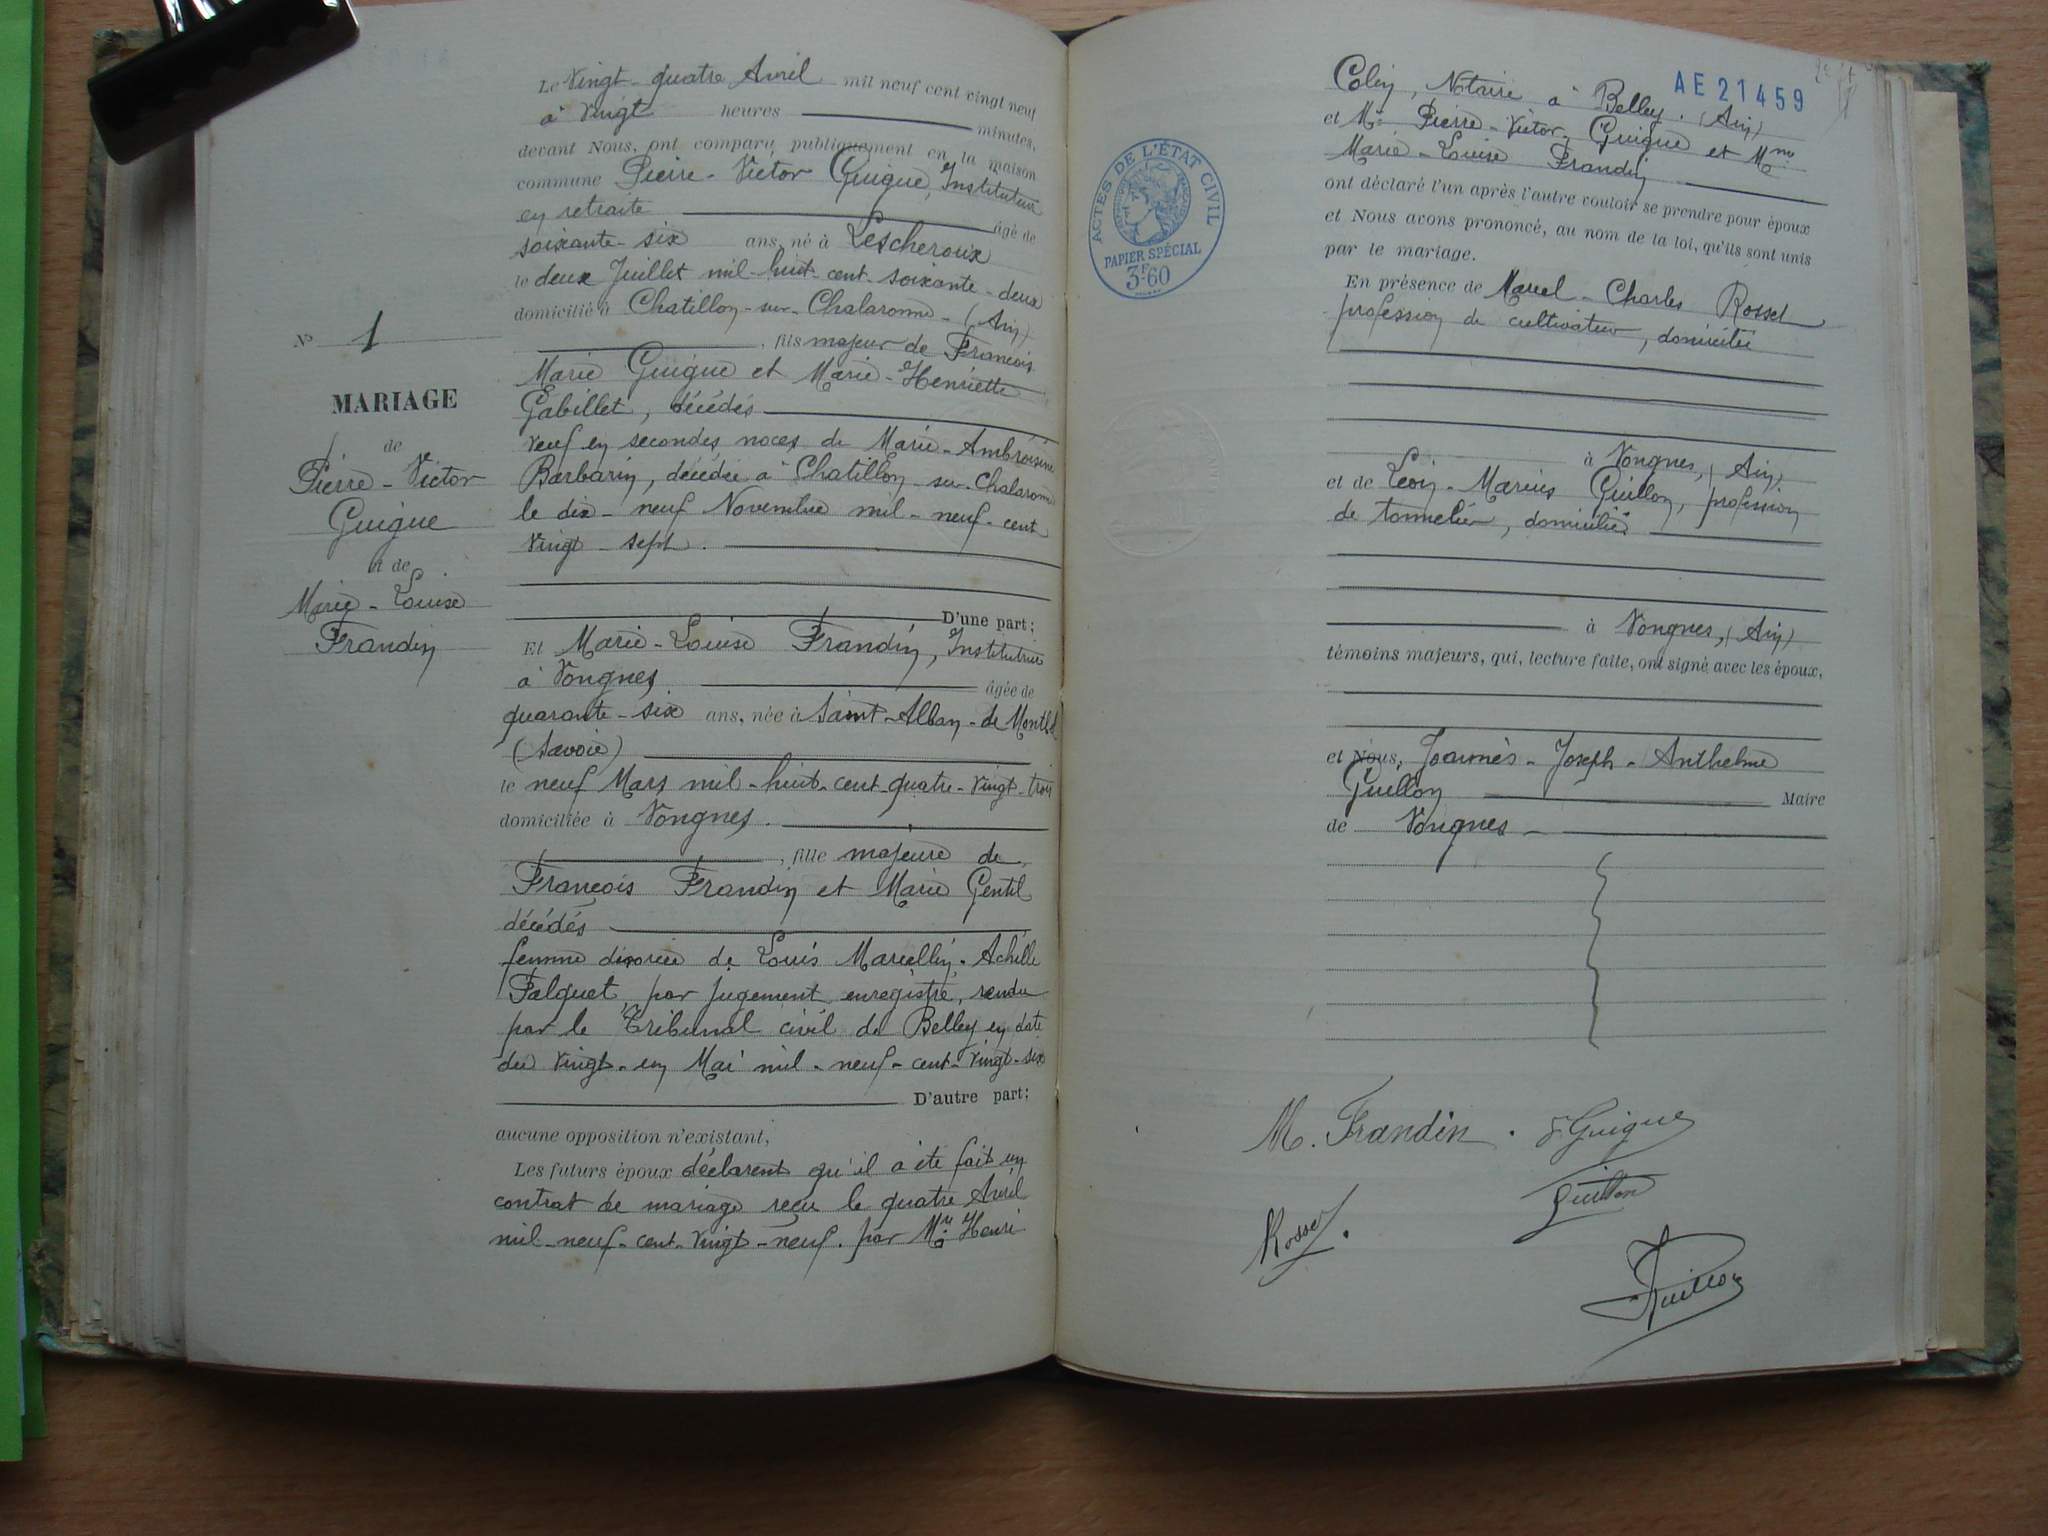 Le Vingt-quatre Avril mil neuf cent vingt neuf
à Vingt heures minutes,
devant Nous, ont comparu publiquement en la maison
commune Pierre-Victor Guigue, Instituteur
en retraite âgé de
soixante-six ans, né à Lescheroux
le deux Juillet mil-huit-cent-soixante-deux
domicilié à Chatillon-sur-Chalaronne-(Ain)
, fils majeur de François
Marie Guigue et Marie-Henriette
Gabillet, décédés
veuf en secondes noces de Marie-Ambroisine
Barbarin, décédée à Chatillon-sur-Chalaronne
le dix-neuf Novembre mil-neuf-cent
vingt-sept.
D'une part;
N° 1
MARIAGE
de
Pierre-Victor
Guigue
et de
Marie-Louise
Frandin
Et Marie-Louise Frandin, Institutrice
à Vongnes âgée de
quarante-six ans, née à Saint-Alban-de-Montbel
(Savoie)
le neuf Mars mil-huit-cent-quatre-vingt-trois
domiciliée à Vongnes.
, fille majeure de
François Frandin et Marie Gentil
décédés
femme divorcée de Louis Marcellin-Achille
Falquet, par jugement enregistré, rendu
par le Tribunal civil de Belley en date
du vingt-un Mai mil-neuf-cent-vingt-six
D'autre part:
aucune opposition n'existant,
Les futurs époux déclarent qu'il a été fait un
contrat de mariage reçu le quatre Avril
mil-neuf-cent-vingt-neuf. par Me Henri
AE 21459
Notaire à Belley. (Ain)
et Mr Pierre-Victor Guigue et Mme
Marie-Louise Frandin
ont déclaré l'un après l'autre vouloir se prendre pour époux
et Nous avons prononcé, au nom de la loi, qu'ils sont unis
par le mariage.
ACTES DE L'ÉTAT CIVIL
PAPIER SPÉCIAL
3F.60
En présence de Marcel-Charles Rosset
profession de cultivateur, domicilié
à Vongnes, (Ain)
et de Léon-Marius Guillon, profession
de tonnelier, domicilié
à Vongnes, (Ain)
témoins majeurs, qui, lecture faite, ont signé avec les époux,
et Nous, Joannès-Joseph-Anthelme
Guillon Maire
de Vongnes
M. Frandin. Guigue
Guillon
Rosset.
Guillon